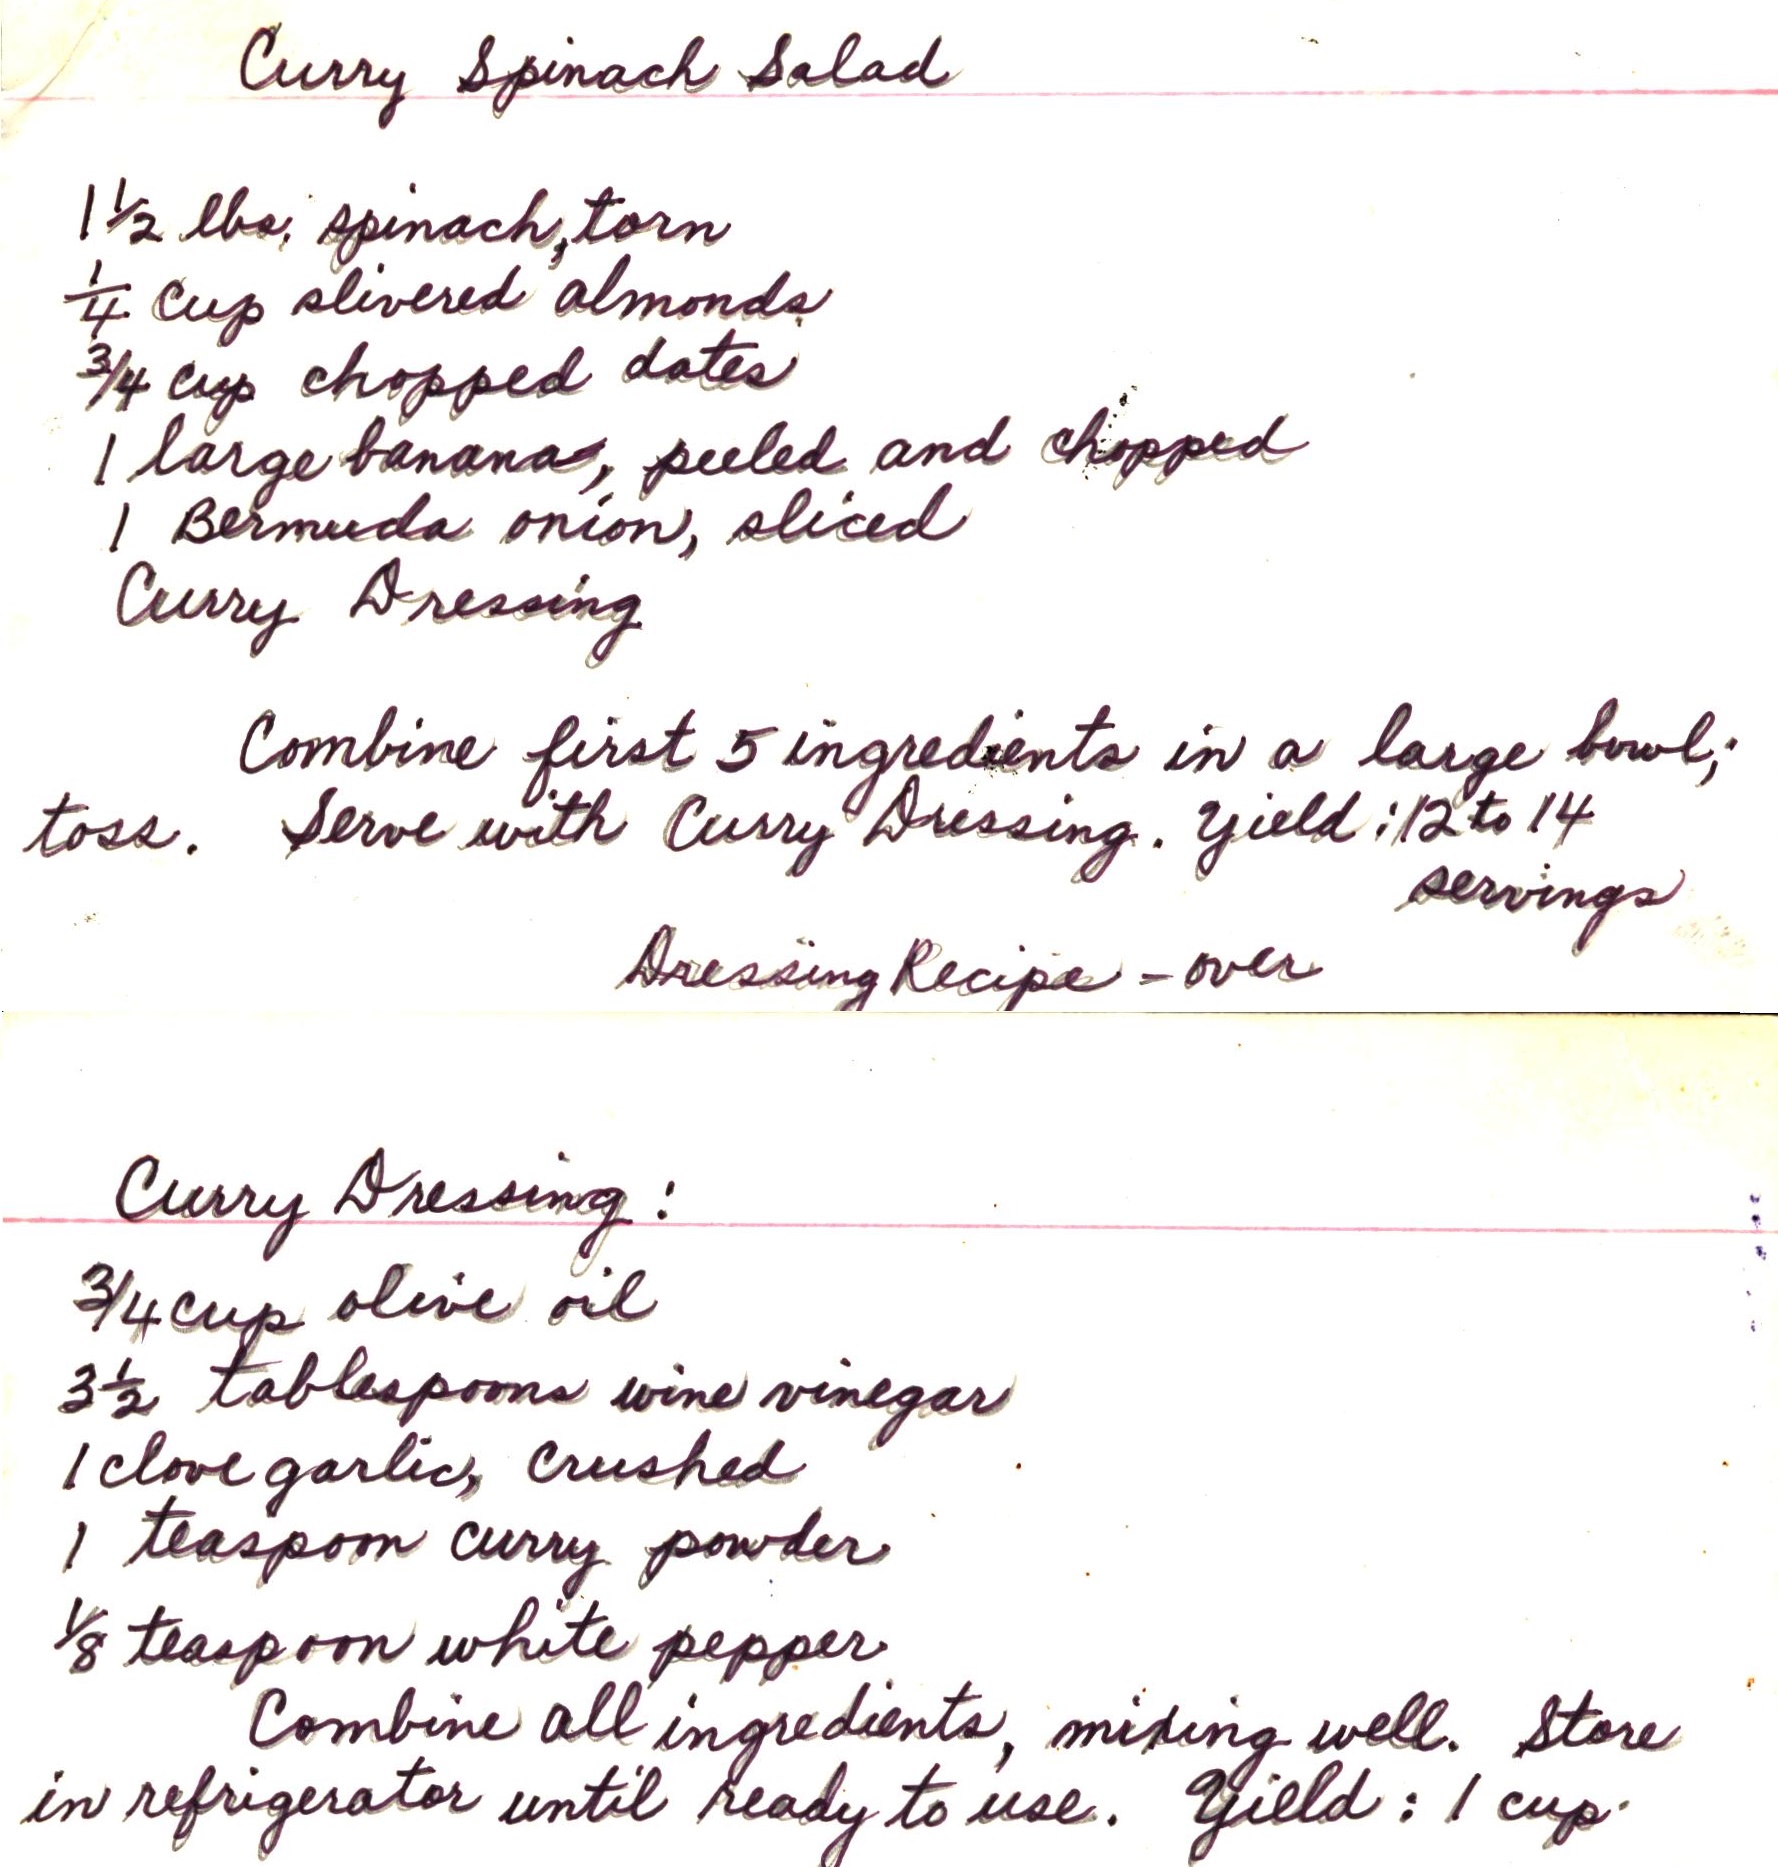 Curry Spinach Salad
1 1/2 lbs. spinach, torn
1/4 cup slivered almonds
3/4 cup chopped dates
1 large banana, peeled and chopped
1 Bermuda onion, sliced
Curry Dressing
Combine first 5 ingredients in a large bowl;
toss. Serve with Curry Dressing. Yield: 12 to 14
servings
Dressing Recipe - over
Curry Dressing:
3/4 cup olive oil
3 1/2 tablespoons wine vinegar
1 clove garlic, crushed
1 teaspoon curry powder
1/8 teaspoon white pepper
Combine all ingredients, mixing well. Store
in refrigerator until ready to use. Yield: 1 cup.